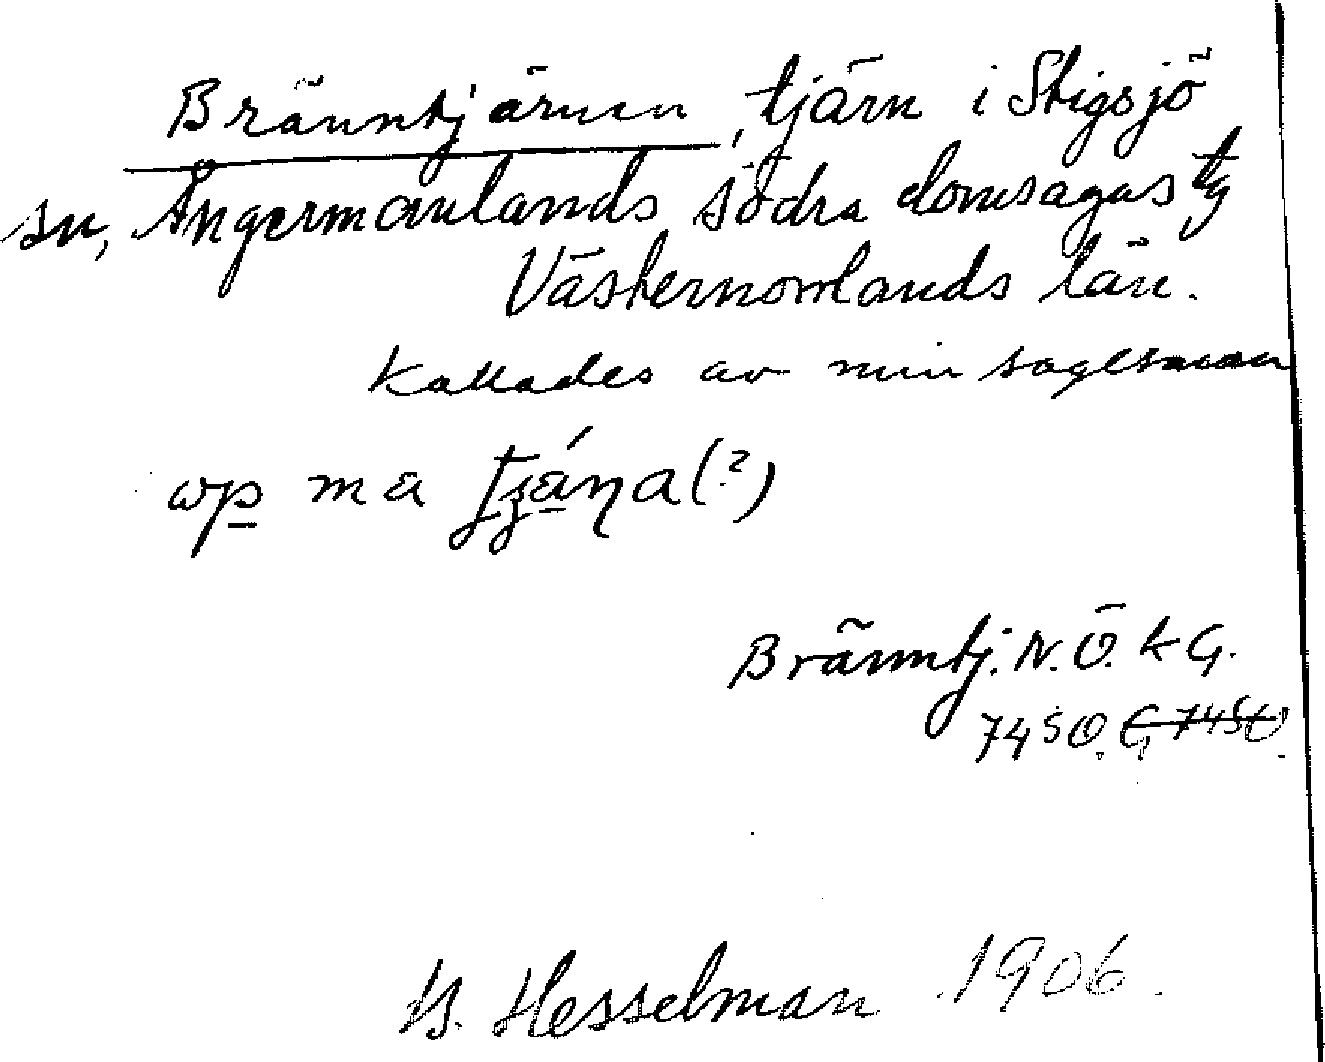 Bränntjärnen, tjärn i Stigsjö
sn, Ångermanlands södra domsagas tg
Västernorrlands län.
Kallades av min sagesman
Bränntj. N.Ö. k G.
7450. G 7450.
B. Hesselman 1906.